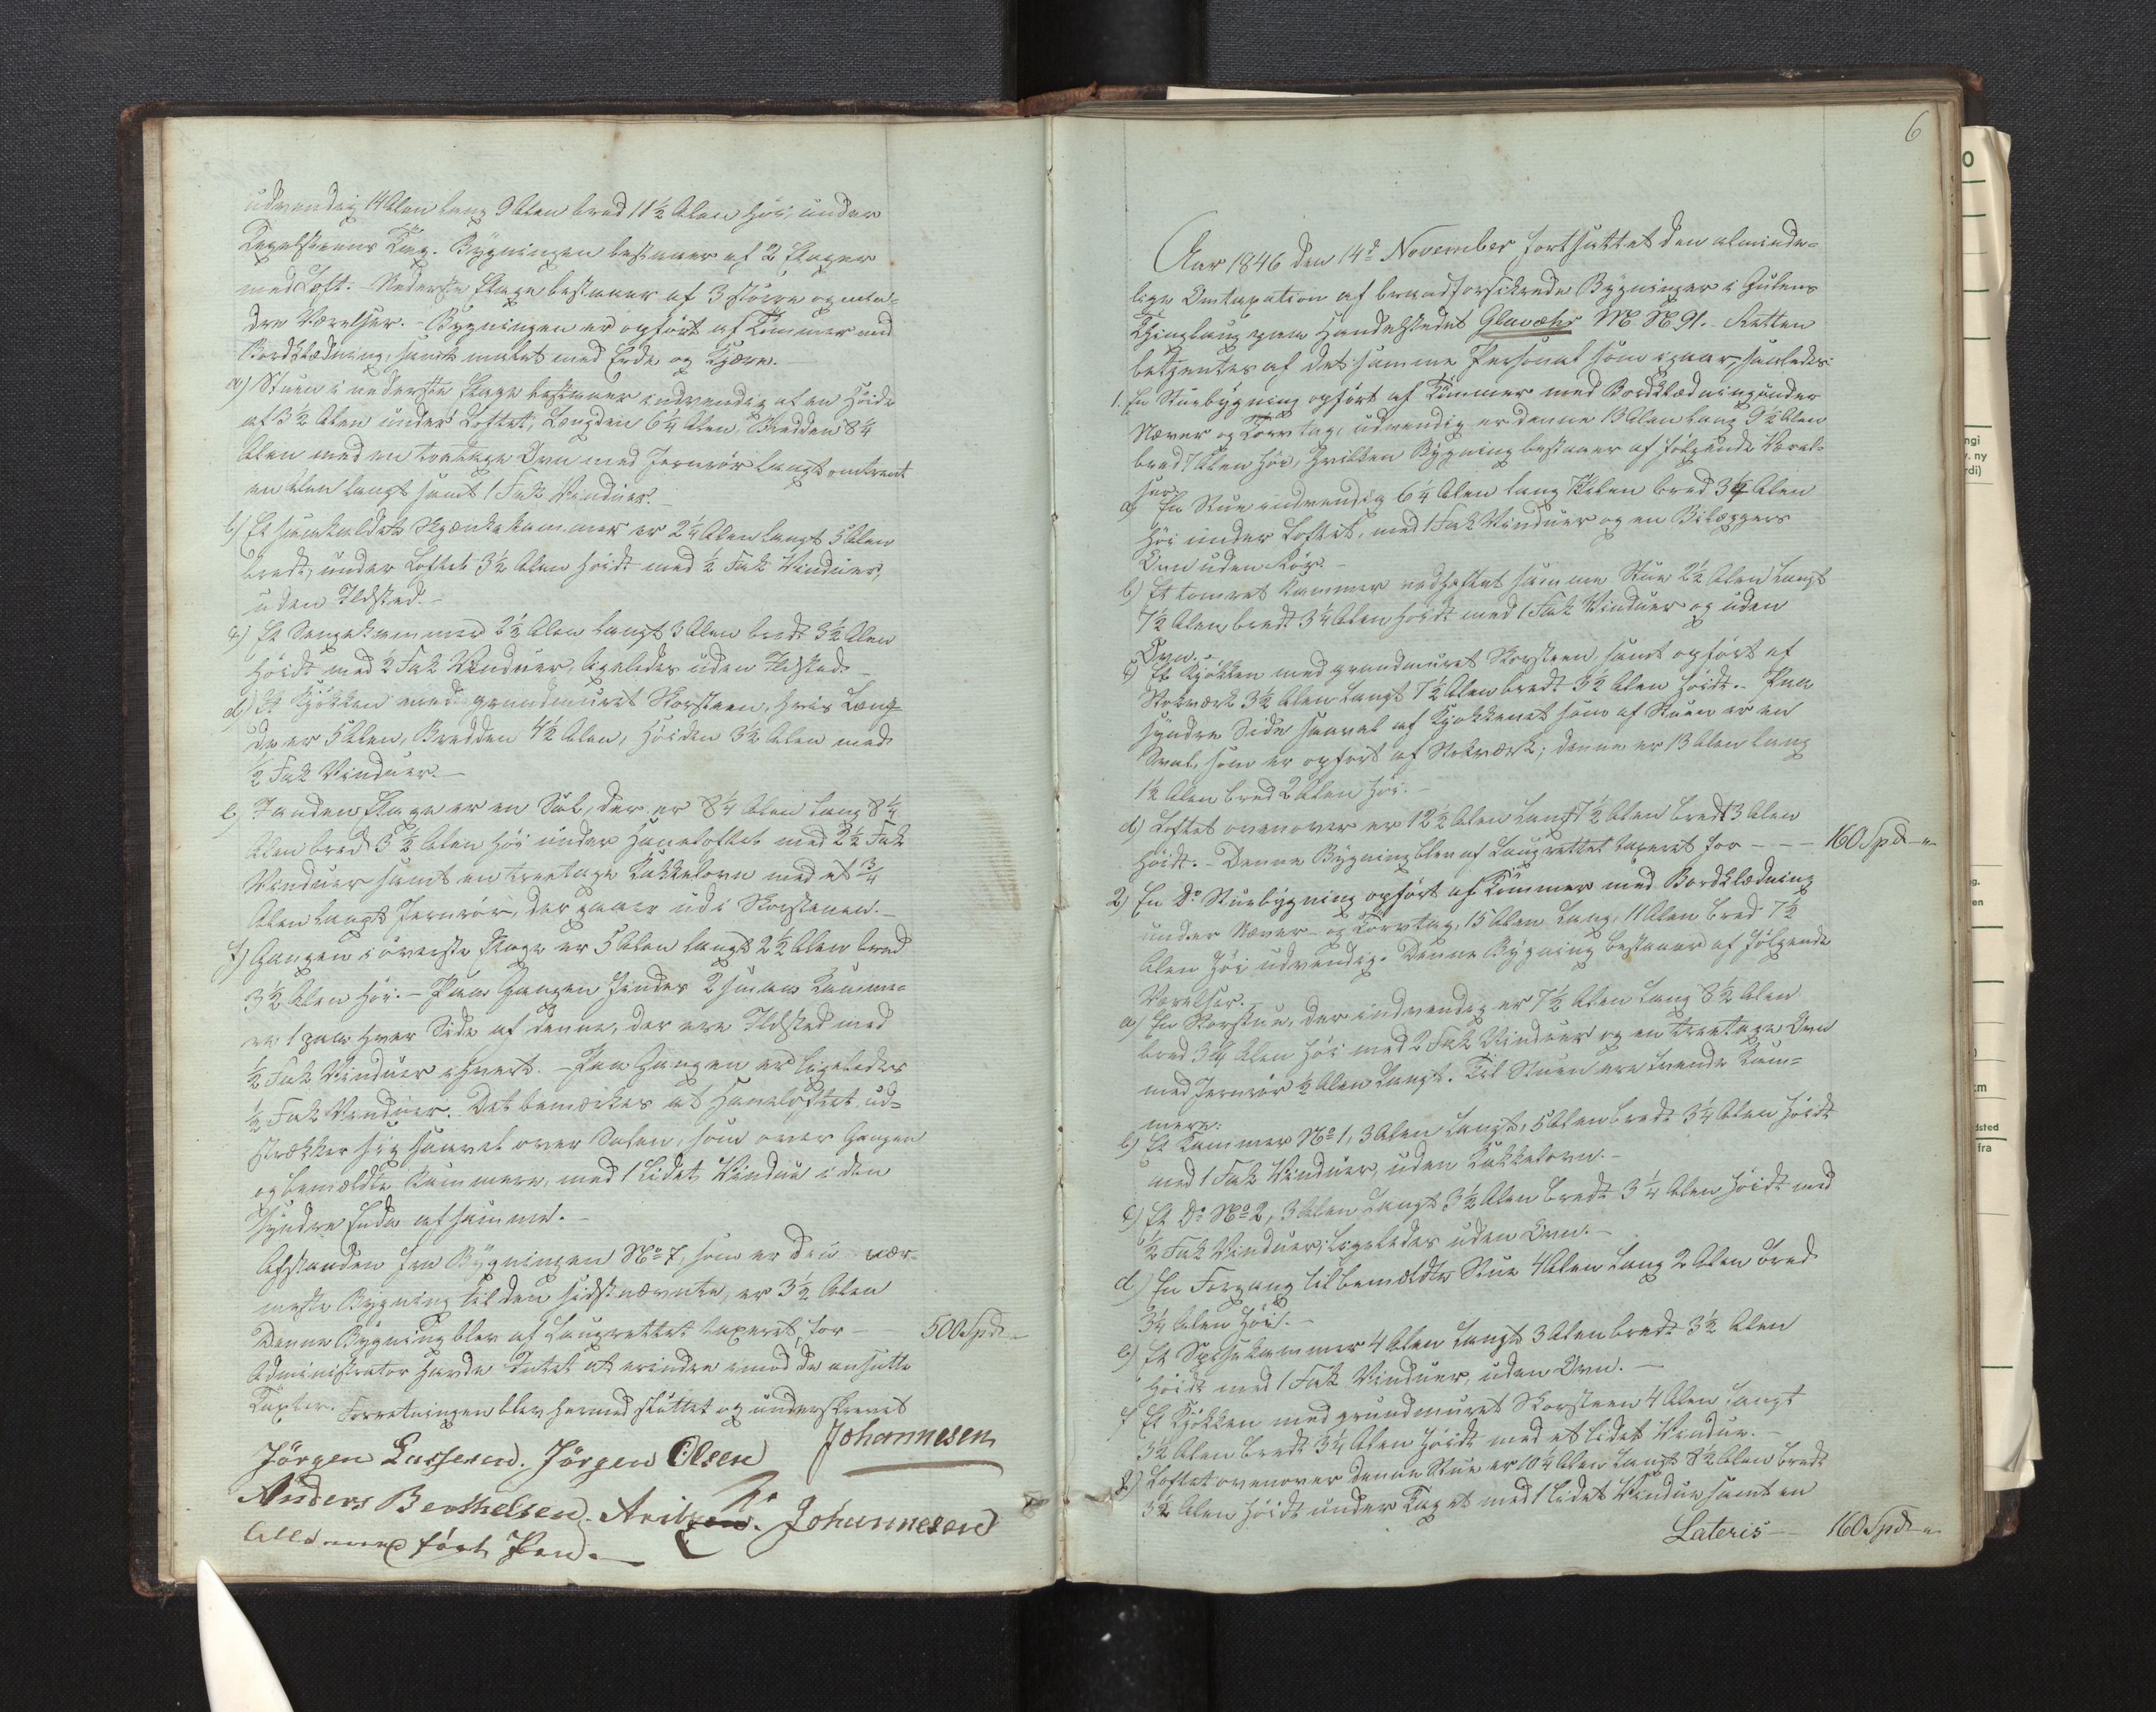 udvendig 14 Alen lang 9 Alen bred 11½ Alen høi, under
Tagelsteens Tag. Bygningen bestaaer af 2 Etager
med Loft. Nederste Etage bestaaer af 3 større og min-
dre Værelser. – Bygningen er opført af Tømmer med
Bordklædning, samt malet med Erde og Tjære.
a) Stuen i nederste Etage bestaaer indvendig af en Høide
af 3½ Alen under Loftet, Længden 6¼ Alen, Bredden 8¼
Alen med en toetages Ovn med Jernrør langt omtrent
en Alen langt samt 1 Fak Vinduer.
b) Et saakaldet Skjænkekammer er 2¼ Alen langt 5 Alen
bredt, under Loftet 3½ Alen høidt med ½ Fak Vinduer,
uden Ildsted. –
c) Et Sengekammer 2½ Alen langt 3 Alen bredt 3½ Alen
høidt med ½ Fak Vinduer, ligeledes uden Ildsted. –
d) Et Kjøkken med grundmuret Skorsteen, hvis Læng-
de er 5 Alen, Bredden 4½ Alen, Høiden 3½ Alen med
½ Fak Vinduer. –
e) I anden Etage er en Sal, der er 8¼ Alen lang 8¼
Alen bred 3½ Alen høi under Haneloftet med 2½ Fak
Vinduer samt en treetages Kakkelovn med et ¾
Alen langt Jernrør, der gaaer ud i Skorstenen. –
f) Gangen i øverste Etage er 5 Alen langt 2½ Alen bred
3½ Alen høi. – Paa Gangen findes 2 smaa Kamme-
re 1 paa hver Side af denne, der ere Ildsted med
½ Fak Vinduer i hvert. – Paa Gangen er ligeledes
½ Fak Vinduer. Det bemærkes at Haneloftet ud-
strækker sig saavel over Salen, som over Gangen
og bemældte Kammere, med 1 lidet Vindue i den
syndre Ende af samme. –
Afstanden fra Bygningen No 7, som er den nær-
meste Bygning til den sidstnævnte, er 3½ Alen
Denne Bygning blev af Laugrettet taxeret for – 500 Spd –
Administrator havde Intet at erindre imod de ansatte
Taxter. Forretningen blev hermed sluttet og underskrevet
Johannesen
Jörgen Lassesen. Jörgen Olsen
Anders Berthelsen. Johannesen
medført Pen. –
6
Aar 1846 den 14d November fortsattet den alminde-
lige Omtaxation af brandforsikrede Bygninger i Gulens
Thinglaug paa Handelstedet Glavæhr M. N. 91. Retten
betjentes af det samme Personal som igaar, saaledes:
1. En Stuebygning opført af Tømmer med Bordklædning under
Næver og Torvtag, udvendig er denne 13 Alen lang 9½ Alen
bred 7 Alen høi, hvilken Bygning bestaaer af følgende Værel-
ser
a) En Stue indvendig 6¼ Alen lang Alen bred 3¼ Alen
høi under Loftet, med 1 Fak Vinduer og en Bilæggers
Ovn uden Rør. –
b) Et tomret Kammer vedheftet samme Stue 2½ Alen langt
7½ Alen bredt 3¼ Alen høidt med 1 Fak Vinduer og uden
Ovn. –
c) Et Kjøkken med grundmuret Skorsteen, samt opført af
Stokværk 3½ Alen langt 7½ Alen bredt 3½ Alen høidt. – Paa
syndre Side saavel af Kjøkkenet som af Stuen er en
Sval, som er opført af Stokværk; denne er 13 Alen lang
1½ Alen bred 2 Alen høi. –
d) Loftet ovenover er 12½ Alen langt 7½ Alen bredt 3 Alen
høidt. – Denne Bygning blev af Laugrettet taxeret for – – – 160 Spd –
2) En Do Stuebygning opført af Tømmer med Bordklædning
under Næver- og Torvtag, 15 Alen lang, 11 Alen bred 7½
Alen høi udvendig. Denne Bygning bestaaer af følgende
Værelser. –
a) En Storstue, der indvendig er 7½ Alen lang 8½ Alen
bred 3¼ Alen høi med 2 Fak Vinduer og en treetages Ovn
med Jernrør ½ Alen langt. Til Stuen ere tvende Kam-
mere:
b) Et Kammer No 1, 3 Alen langt, 5 Alen bredt 3¼ Alen høidt
med 1 Fak Vinduer, uden Kakkelovn. –
c) Et Do No 2, 3 Alen langt 3½ Alen bredt 3¼ Alen høidt med
½ Fak Vinduer; ligeledes uden Ovn. –
d) En Forgang til bemældte Stue 4 Alen lang 2 Alen bred
3¼ Alen høi. –
e) Et Spisekammer 4 Alen langt 3 Alen bredt 3½ Alen
høidt med 1 Fak Vinduer, uden Ovn. –
f Et Kjøkken med grundmuret Skorsteen 4 Alen langt
3½ Alen bredt 3¼ Alen høidt med et lidet Vindue. –
g) Loftet ovenover denne Stue er 10¼ Alen langt 8½ Alen bredt
3½ Alen høidt under Taget med 1 lidet Vindue samt en
Lateris – 160 Spd –